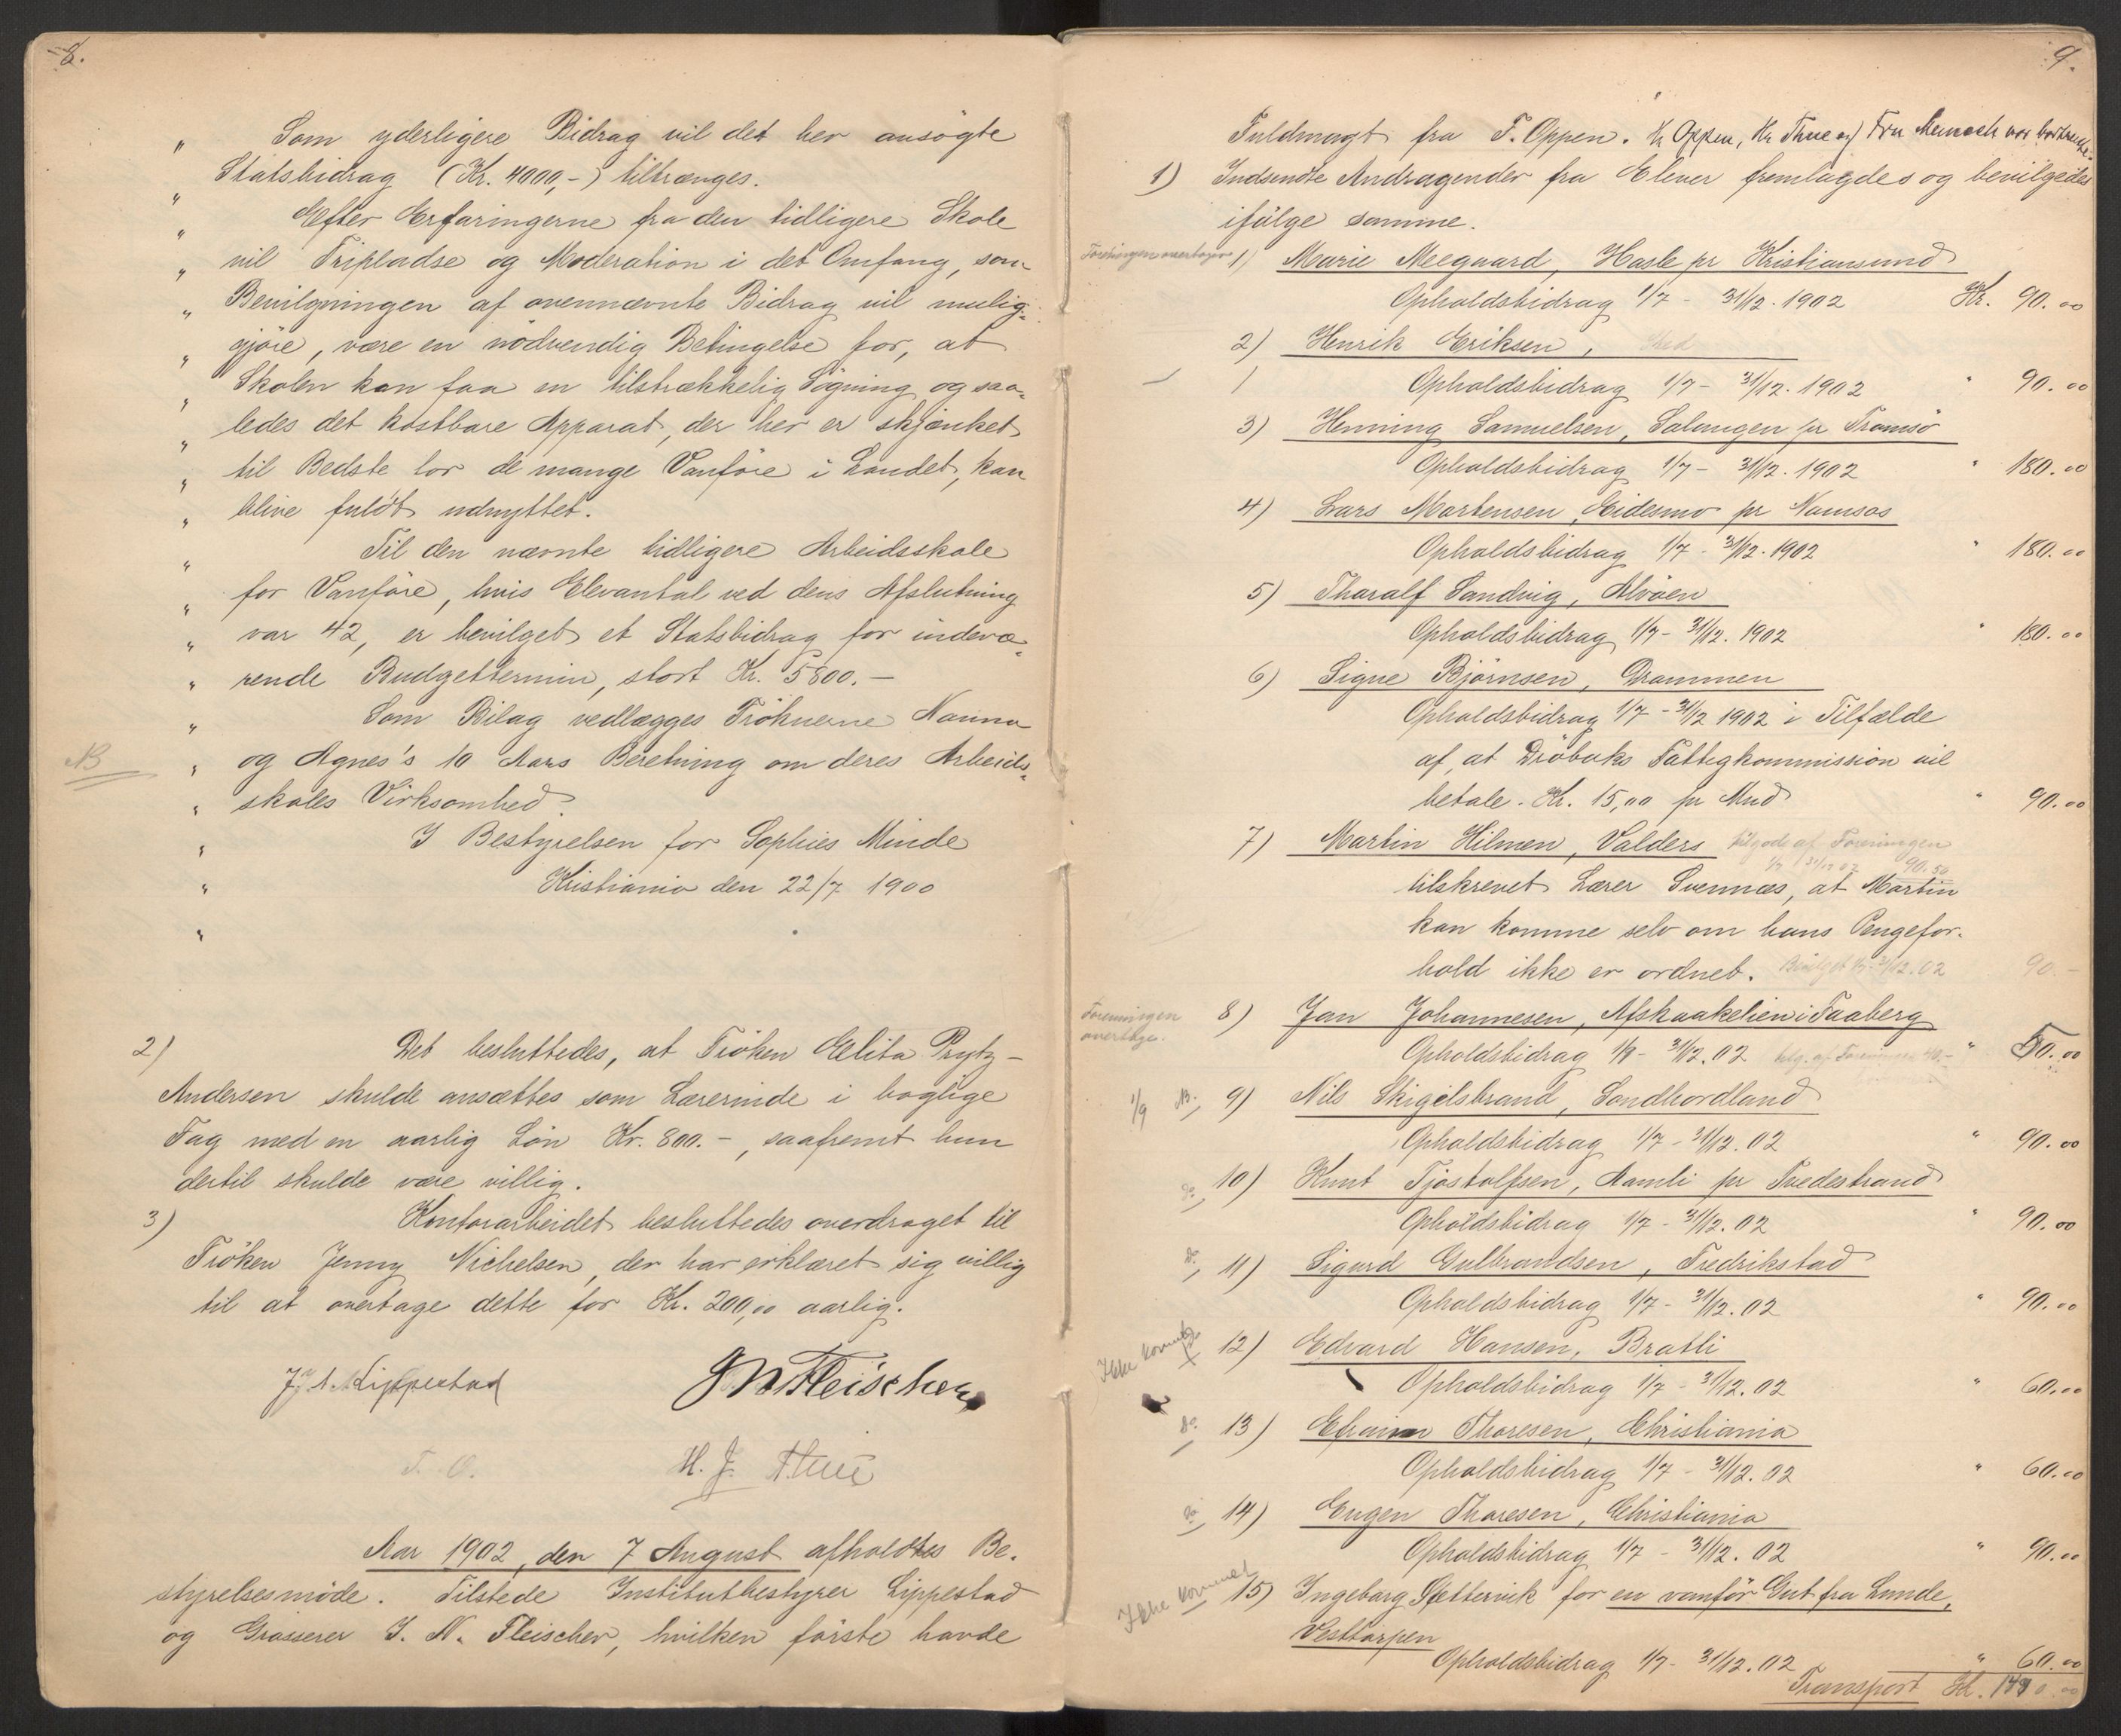 8.
" Som yderligere Bidrag vil det her ansøgte
" Statsbidrag (Kr. 4000,-) tiltrænges.
" Efter Erfaringerne fra den tidligere Skole
" vil Fripladse og Moderation i det Omfang, som
" Bevilgningen af ovennævnte Bidrag vil mulig-
" gjöre, være en nödvendig Betingelse for, at
" Skolen kan faa en tilstrækkelig Sögning og saa-
" ledes det kostbare Apparat, der her er skjænket
" til Bedste for de mange Vanföre i Landet, kan
" blive fuldt udnyttet.
" Til den nævnte tidligere Arbeidsskole
" for Vanföre, hvis Elevantal ved dens Afslutning
" var 42, er bevilget et Statsbidrag for indevæ-
" rende Budgettermin, stort Kr. 5800.-
" Som Bilag vedlægges Fröknerne Nanna
NB " og Agnes's 10 Aars Beretning om deres Arbeids-
" skoles Virksomhed.
" I Bestyrelsen for Sophies Minde
" Kristiania den 22/7 1900
"
2) Det besluttedes, at Fröken Elita Prytz-
Andersen skulde ansættes som Lærerinde i boglige
Fag med en aarlig Lön Kr. 800.-, saafremt hun
dertil skulde være villig.
3) Kontorarbeidet besluttedes overdraget til
Fröken Jenny Nichelsen, der har erklæret sig villig
til at overtage dette for Kr. 200,00 aarlig.
Lippestad J N Fleischer
T. O. H. J. Thue
Aar 1902, den 7 August afholdtes Be-
styrelsesmöde. Tilstede Institutbestyrer Lippestad
og Grosserer I. N. Fleischer, hvilken förste havde
9.
Fuldmagt fra T. Oppen. Hr Oppen, Hr Thue og Fru var bortreiste.
1) Indsendte Andragender fra Elever fremlagdes og bevilgedes
ifölge samme.
Foreningen overtager 1) Marie Meegaard, Hasle pr Kristiansund
Opholdsbidrag 1/7 - 31/12. 1902 Kr. 90.00
2) Henrik Eriksen,
Opholdsbidrag 1/7 - 31/12. 1902 " 90.00
3) Henning Samuelsen, Salangen pr Tromsö
Opholdsbidrag 1/7 - 31/12. 1902 " 180.00
4) Lars Mortensen, Eidesmo pr Namsos
Opholdsbidrag 1/7 - 31/12. 1902 " 180.00
5) Tharalf Sandvig, Alvöen
Opholdsbidrag 1/7 - 31/12. 1902 " 180.00
6) Signe Björnsen, Drammen
Opholdsbidrag 1/7 - 31/12 1902 i Tilfælde
af, at Dröbaks Fattigkommission vil
betale. Kr. 15,00 pr Mnd " 90.00
7) Martin Hilmen, Valders tilgode af Foreningen
1/7 31/12 02 90.50
tilskrevet Lærer Svennæs, at Martin
kan komme selv om hans Pengefor-
hold ikke er ordnet. Bevilget 1/7 - 31/12.02 90.-
Foreningen overtage. 8) Jan Johannesen, Afskaakelien i Faaberg
Opholdsbidrag 1/8 - 31/12.02 af Foreningen 40.- " 50.00
1/9 NB. 9) Nils Skigelstrand, Söndhordland
Opholdsbidrag 1/7 - 31/12.02 " 90.00
do 10) Knut Tjöstolfsen, Aamli pr Tvedestrand
Opholdsbidrag 1/7 - 31/12.02 " 90.00
do 11) Sigurd Gulbrandsen, Fredrikstad
Opholdsbidrag 1/7 - 31/12.02 " 90.00
Ikke kommet x 12) Edvard Hansen, Bratli
Opholdsbidrag 1/7 - 31/12.02 " 60.00
do 13) Efraim Thoresen, Christiania
Opholdsbidrag 1/7 - 31/12.02 " 60.00
do 14) Eugen Thoresen, Christiania
Opholdsbidrag 1/7 - 31/12.02 " 90.00
Ikke kommet 15) Ingeborg Sættervik for en vanför Gut fra Lunde,
Vesttorpen
Opholdsbidrag 1/7 - 31/12.02 " 60.00
Transport Kr.